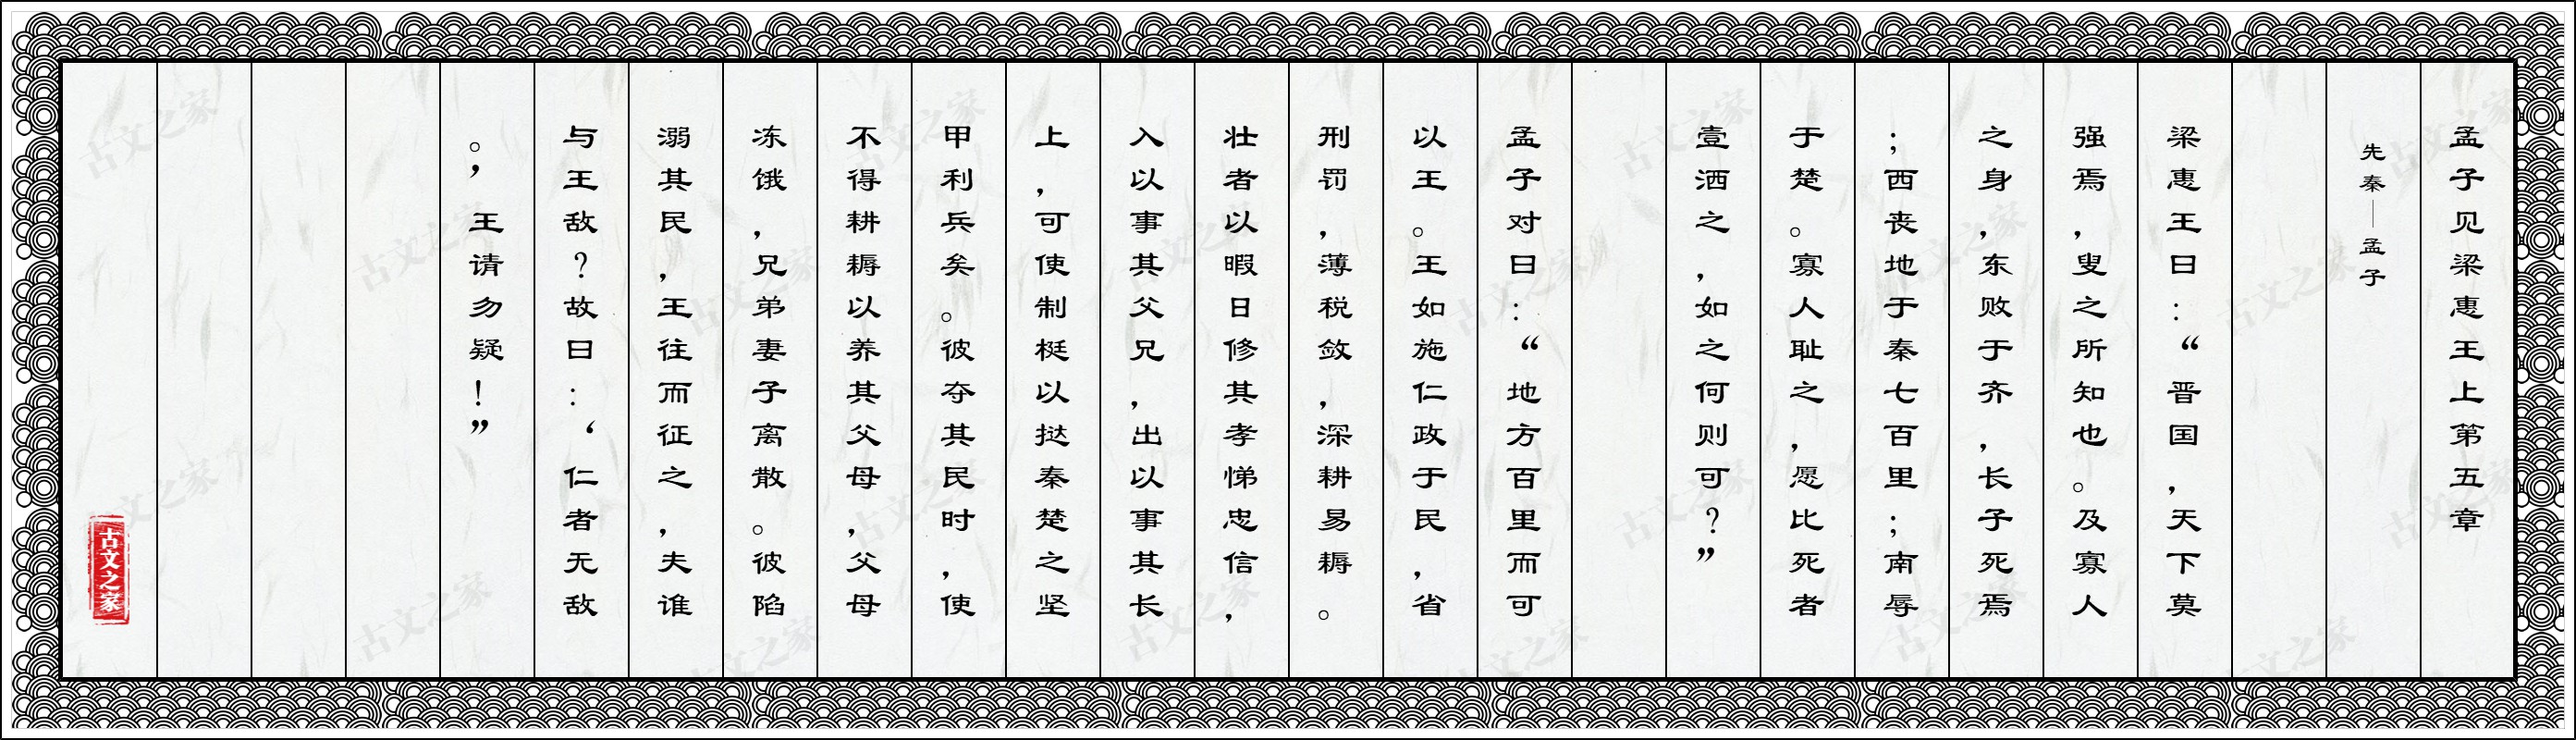 孟子见梁惠王上第五章
先秦—孟子
梁惠王曰：“晋国，天下莫
强焉，叟之所知也。及寡人
之身，东败于齐，长子死焉
；西丧地于秦七百里；南辱
于楚。寡人耻之，愿比死者
壹洒之，如之何则可？”
孟子对曰：“地方百里而可
以王。王如施仁政于民，省
刑罚，薄税敛，深耕易耨。
壮者以暇日修其孝悌忠信，
入以事其父兄，出以事其长
上，可使制梃以挞秦楚之坚
甲利兵矣。彼夺其民时，使
不得耕耨以养其父母，父母
冻饿，兄弟妻子离散。彼陷
溺其民，王往而征之，夫谁
与王敌？故曰：‘仁者无敌
。’王请勿疑！”
古文之家